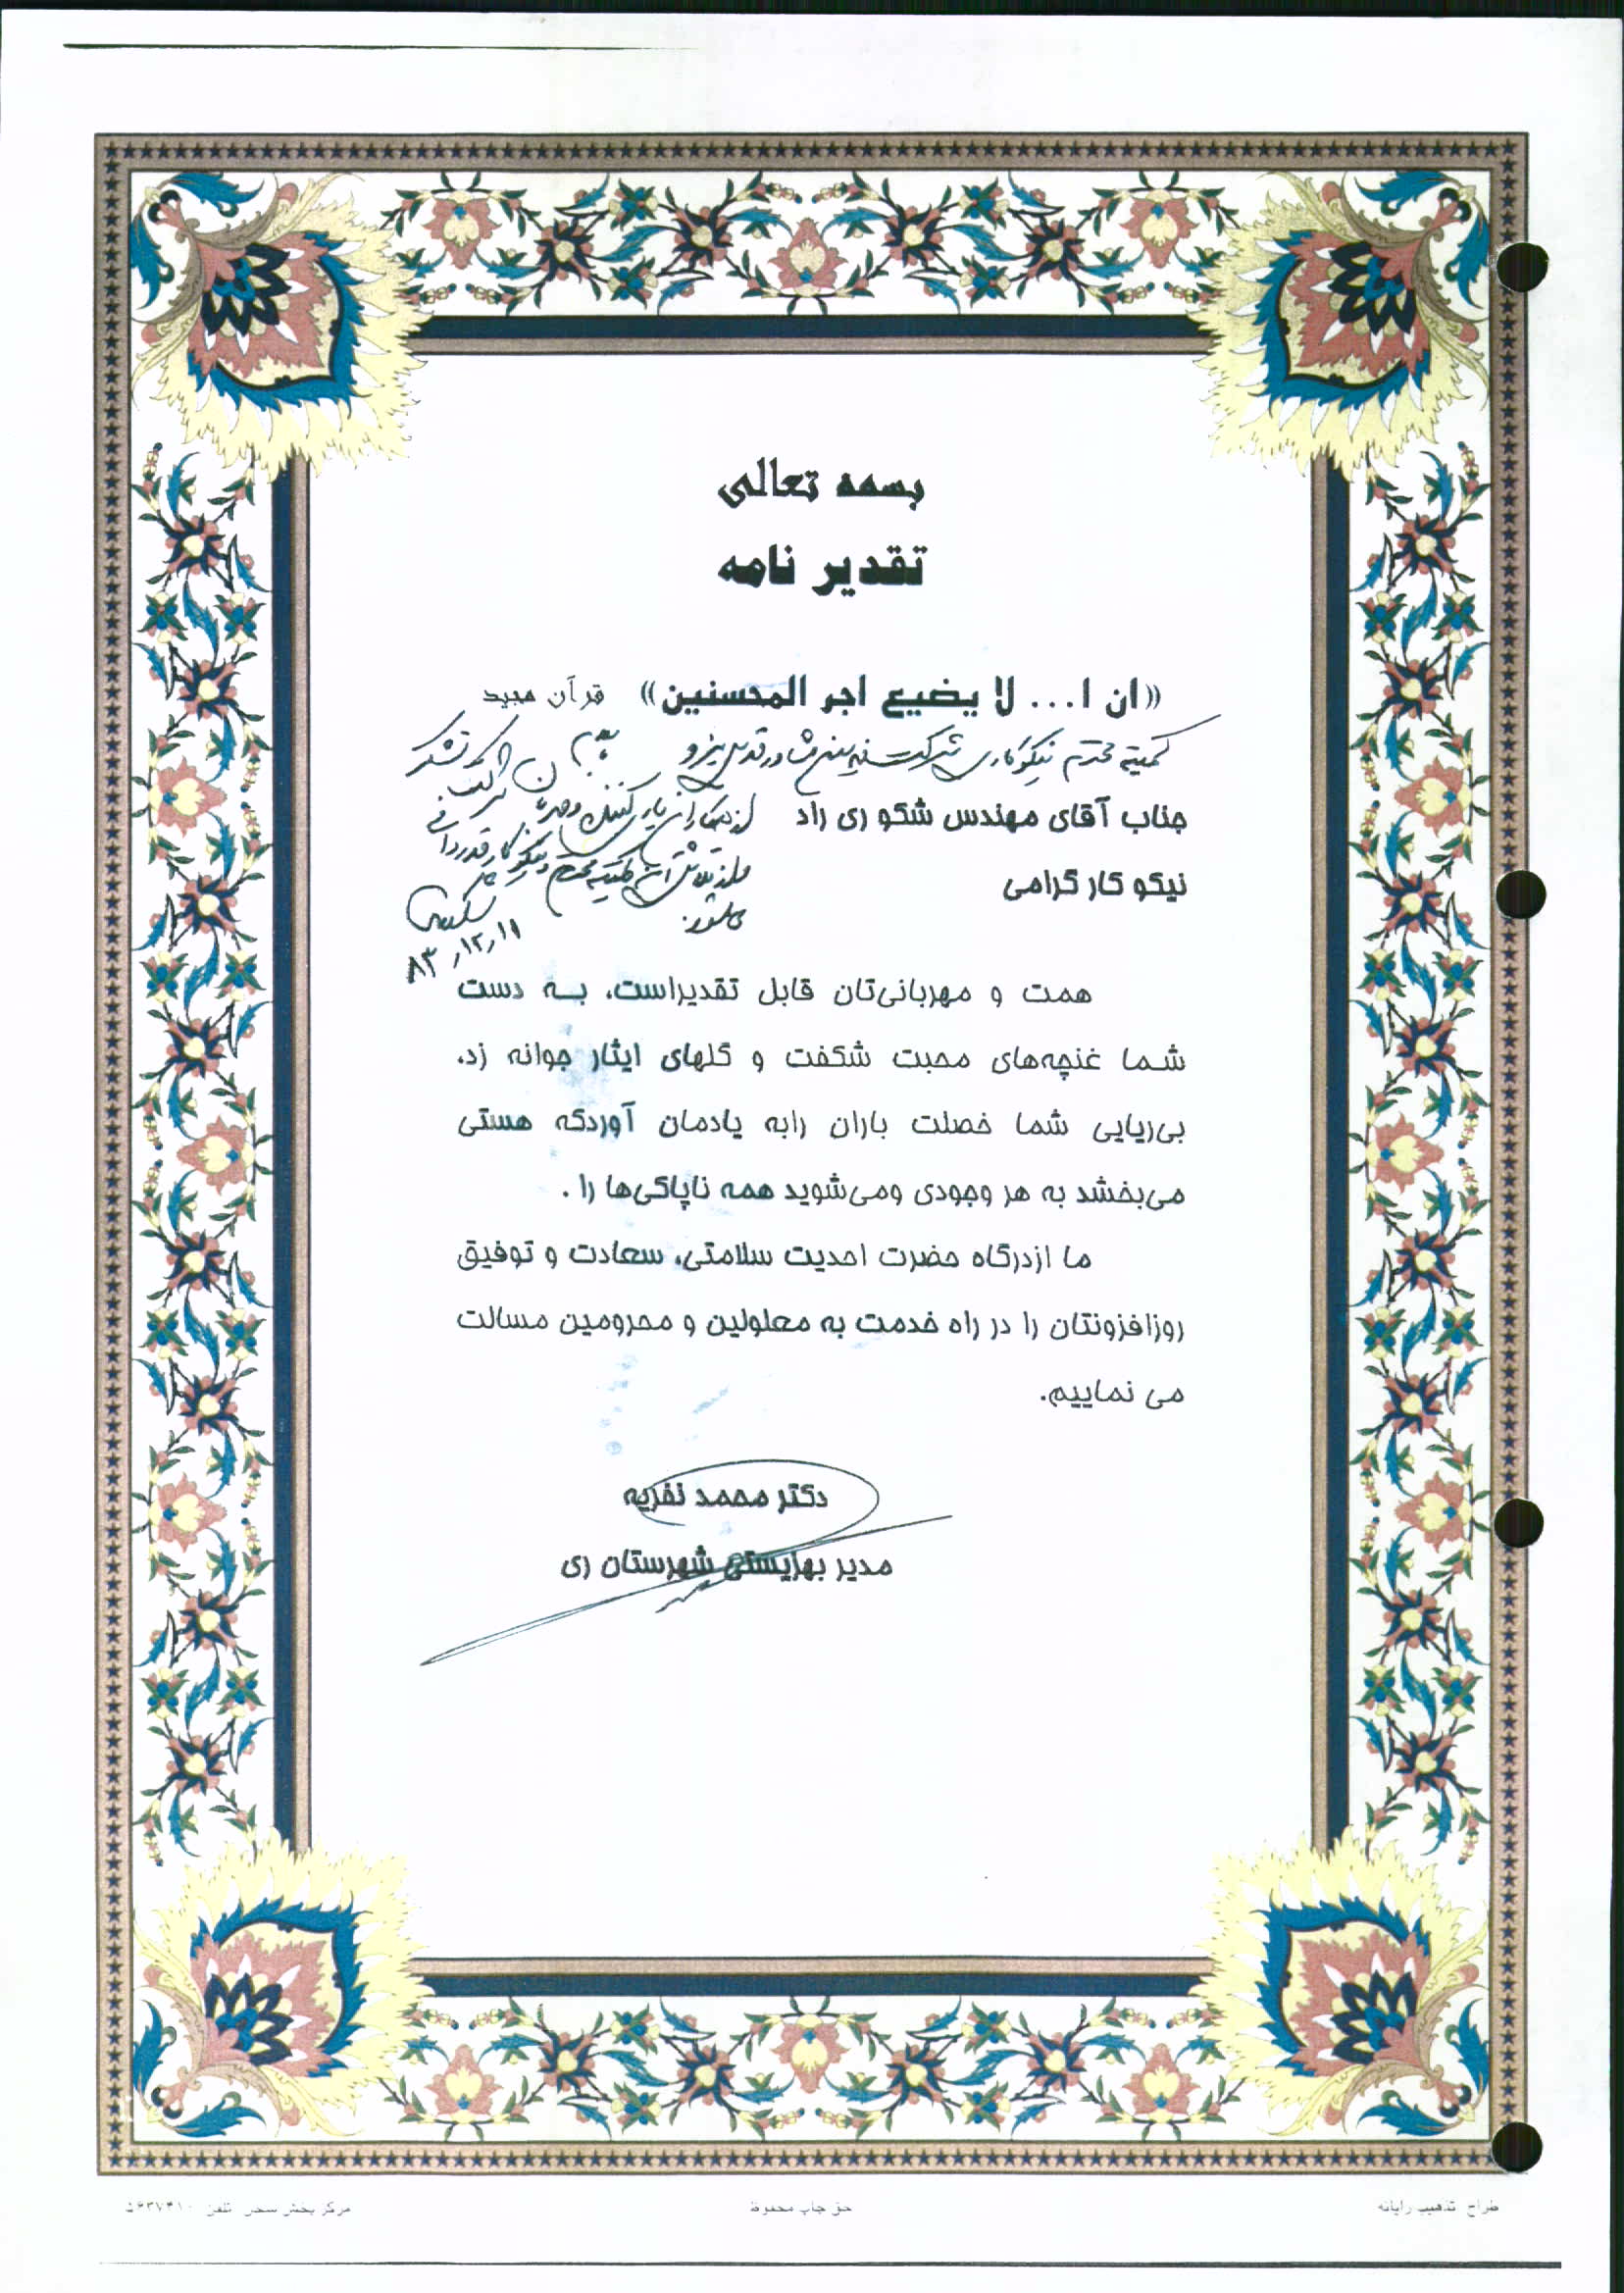 بسمه تعالی
تقدیر نامه
«ان ا... لا یضیع اجر المحسنین» قرآن مجید
کمیته محترم نیکوکاری شرکت مشاور قدس نیرو
جناب آقای مهندس شکو ری راد
نیکو کار گرامی
۸۳,۱۲,۱۱
همت و مهربانی‌تان قابل تقدیراست، به دست
شما غنچه‌های محبت شکفت و گلهای ایثار جوانه زد،
بی‌ریایی شما خصلت باران رابه یادمان آوردکه هستی
می‌بخشد به هر وجودی ومی‌شوید همه ناپاکی‌ها را .
ما ازدرگاه حضرت احدیت سلامتی، سعادت و توفیق
روزافزونتان را در راه خدمت به معلولین و محرومین مسالت
می نماییم.
دکتر محمد نفریه
مدیر بهزیستی شهرستان ری
طراح تذهیب رایانه
حق چاپ محفوظ
مرکز پخش سحر تلفن ۵۶۳۷۴۱۰